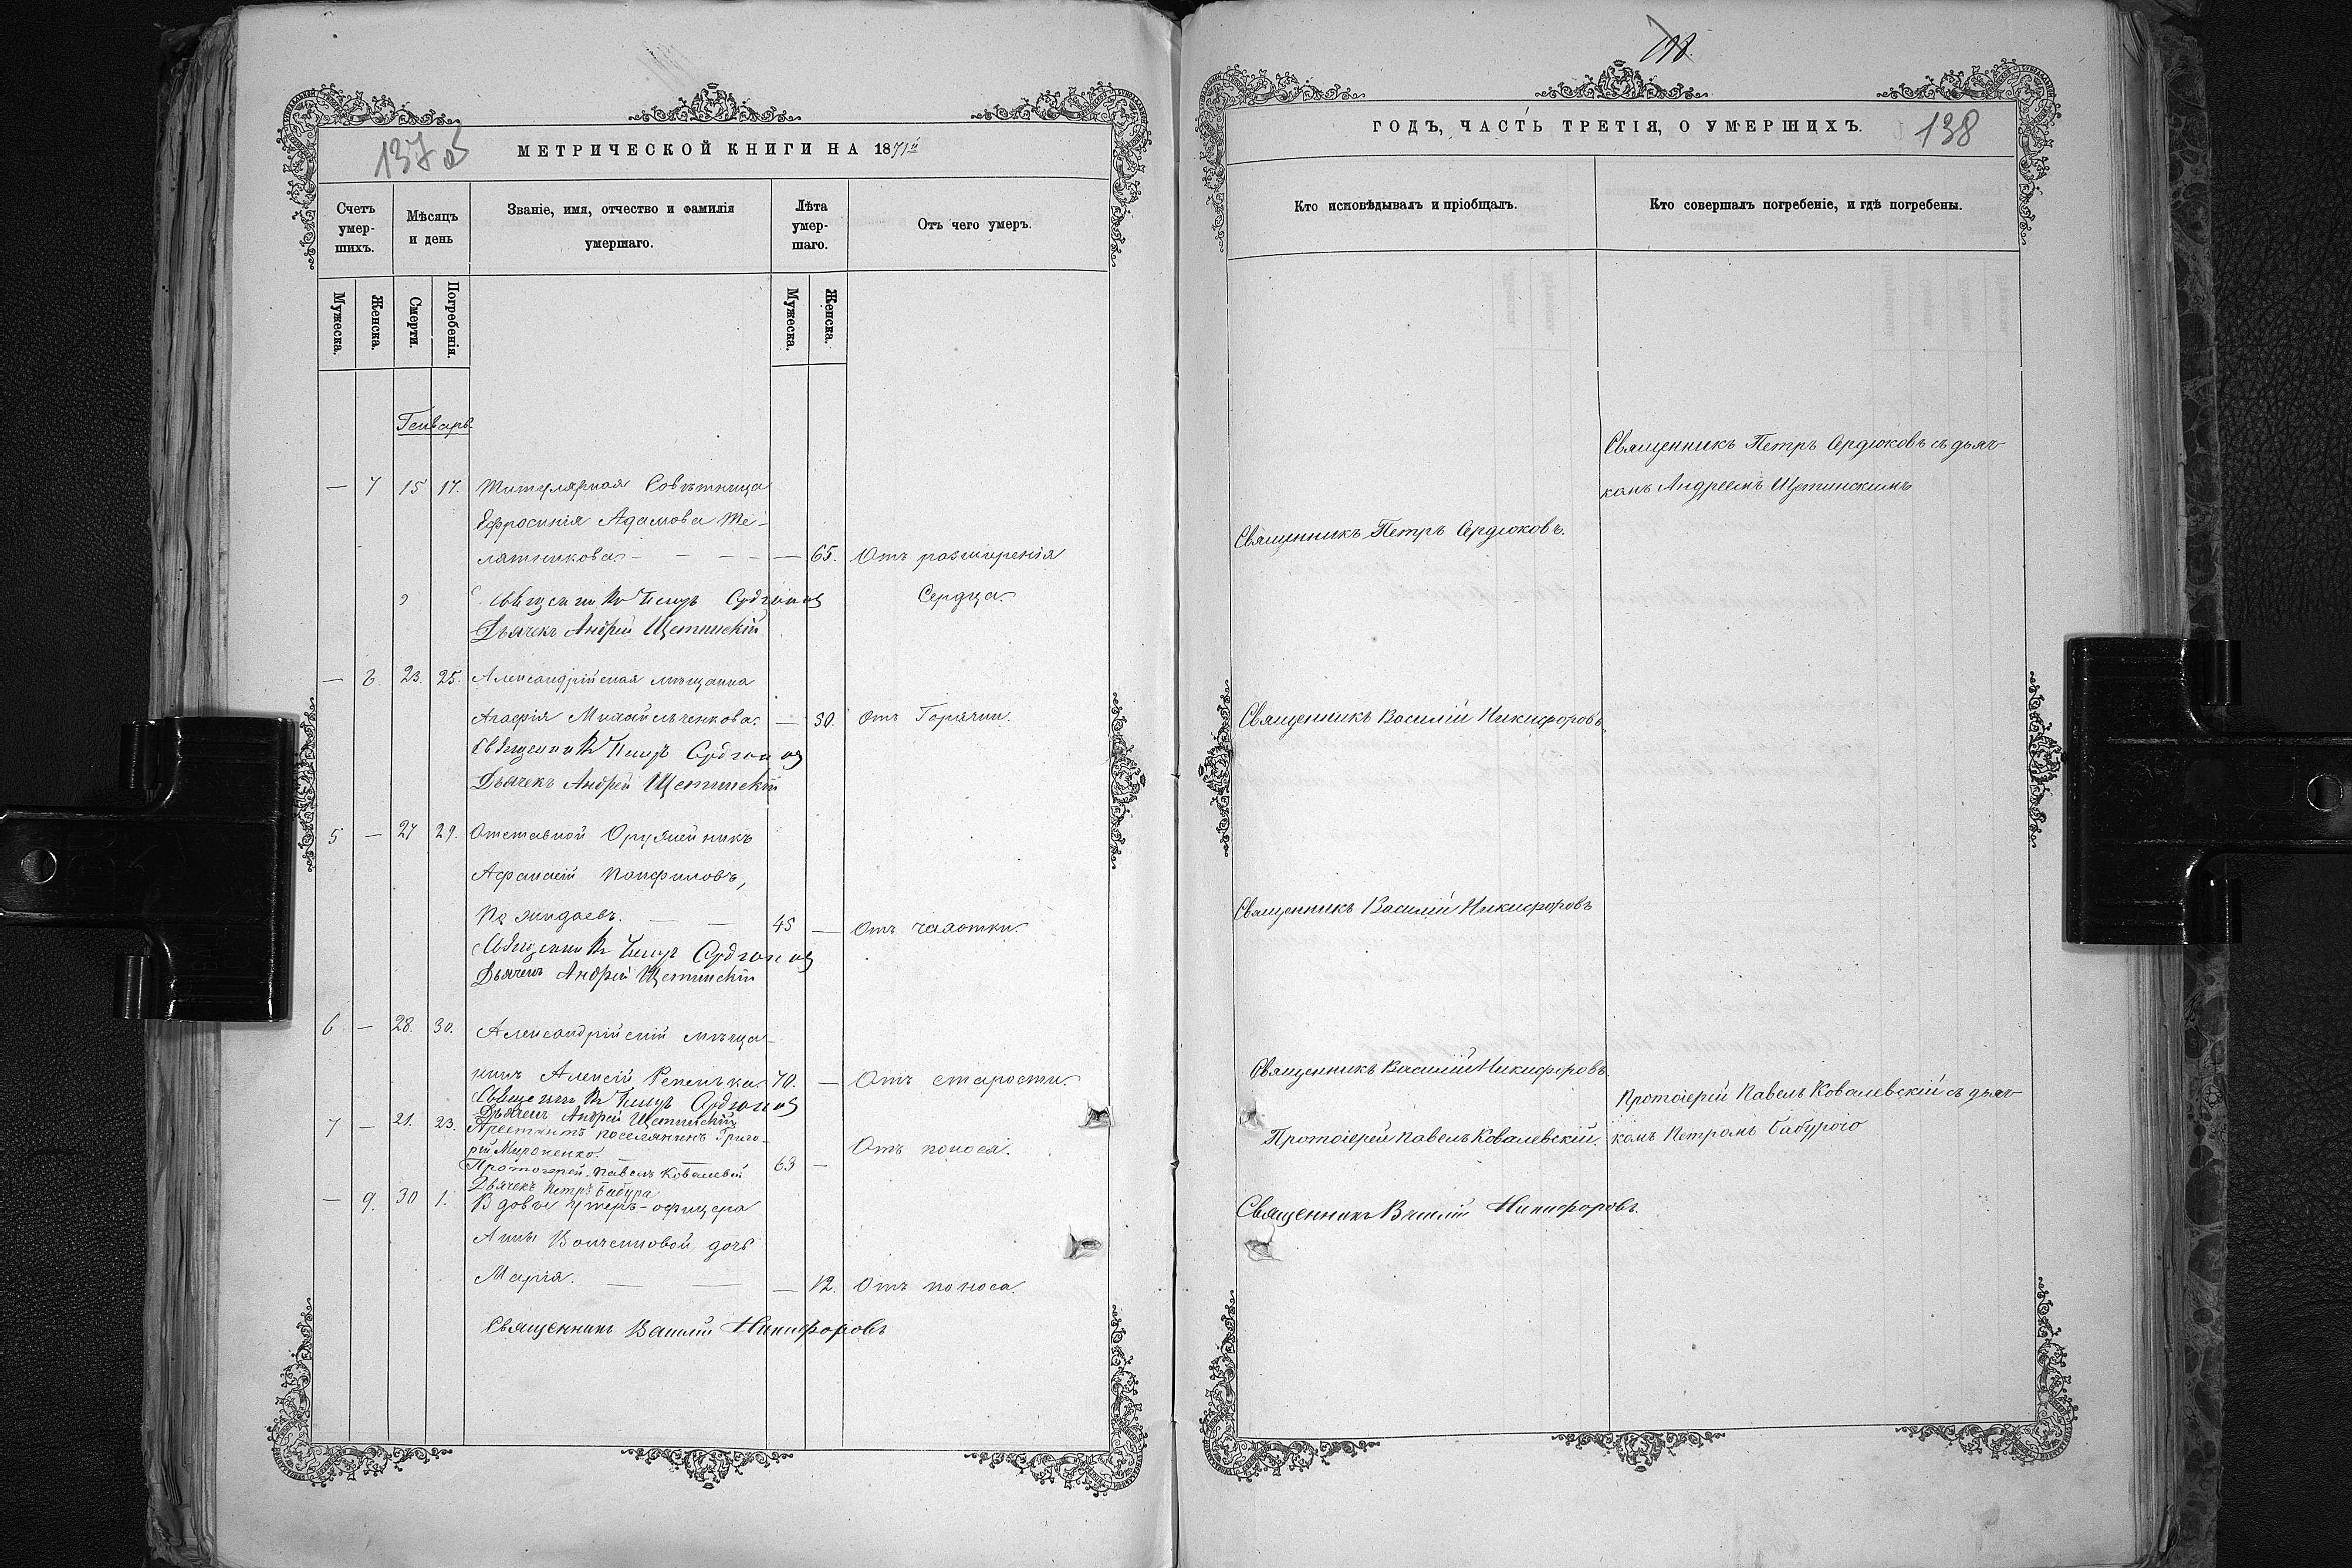 137об
МЕТРИЧЕСКОЙ КНИГИ НА 1871й
Счетъ умер-шихъ.
Мѣсяцъ и день
Званіе, имя, отчество и фамилія умершаго.
Лѣта умер-шаго.
Отъ чего умеръ.
Мужеска.
Женска.
Смерти.
Погребенія.
Мужеска.
Женска.
Генварь.
— 7 15 17. Титулярная Совѣтница
Ефросинія Адамова Те-
лятникова — — — — 65. Отъ розширенія
Сердца.
Священникъ Петръ Сердюковъ
Дьячекъ Андрей Щетинскій
— 8. 23. 25. Александрійская мѣщанка
Агафія Михайльченкова. — 30. Отъ Горячки.
Священникъ Петръ Сердюковъ
Дьячекъ Андрей Щетинскій
5 — 27 29. Отставной Оружейникъ
Афанасій Панфиловъ,
45 — Отъ чахотки.
Священникъ Петръ Сердюковъ
Дьячекъ Андрей Щетинскій
6 — 28. 30. Александрійскій мѣща-
нинъ Алексій Репенька. 70. — Отъ старости.
Священникъ Петръ Сердюковъ
Дьячекъ Андрей Щетинскій
7 — 21. 23. Арестантъ поселянинъ Григо-
рій Мироненко. 63 — Отъ поноса.
Протоіерей Павелъ Ковалевскій
Дьячекъ Петръ Бабура
— 9. 30 1. Вдовы Унтеръ-офицера
Анны Волченковой дочь
Марія. — — — 12. Отъ поноса.
Священникъ Василій Никифоровъ
ГОДЪ, ЧАСТЬ ТРЕТІЯ, О УМЕРШИХЪ.
138
Кто исповѣдывалъ и пріобщалъ.
Кто совершалъ погребеніе, и гдѣ погребены.
Священникъ Петръ Сердюковъ съ дьяч-
комъ Андреемъ Щетинскимъ
Священникъ Петръ Сердюковъ.
Священникъ Василій Никифоровъ.
Священникъ Василій Никифоровъ
Священникъ Василій Никифоровъ.
Протоіерей Павелъ Ковалевскій съ дьяч-
Протоіерей Павелъ Ковалевскій. комъ Петромъ Бабурою
Священникъ Василій Никифоровъ.